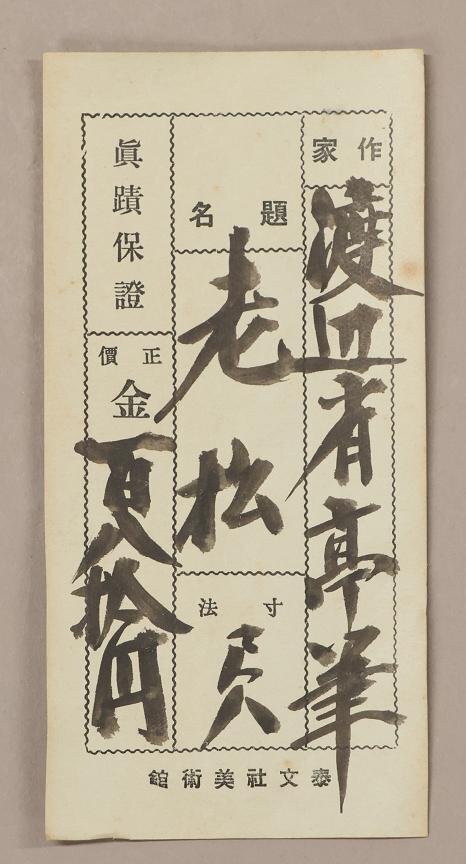 作家
渡辺省亭筆
題名
老松
寸法
尺八
眞蹟保證
正價
金
百八拾円
泰文社美術館